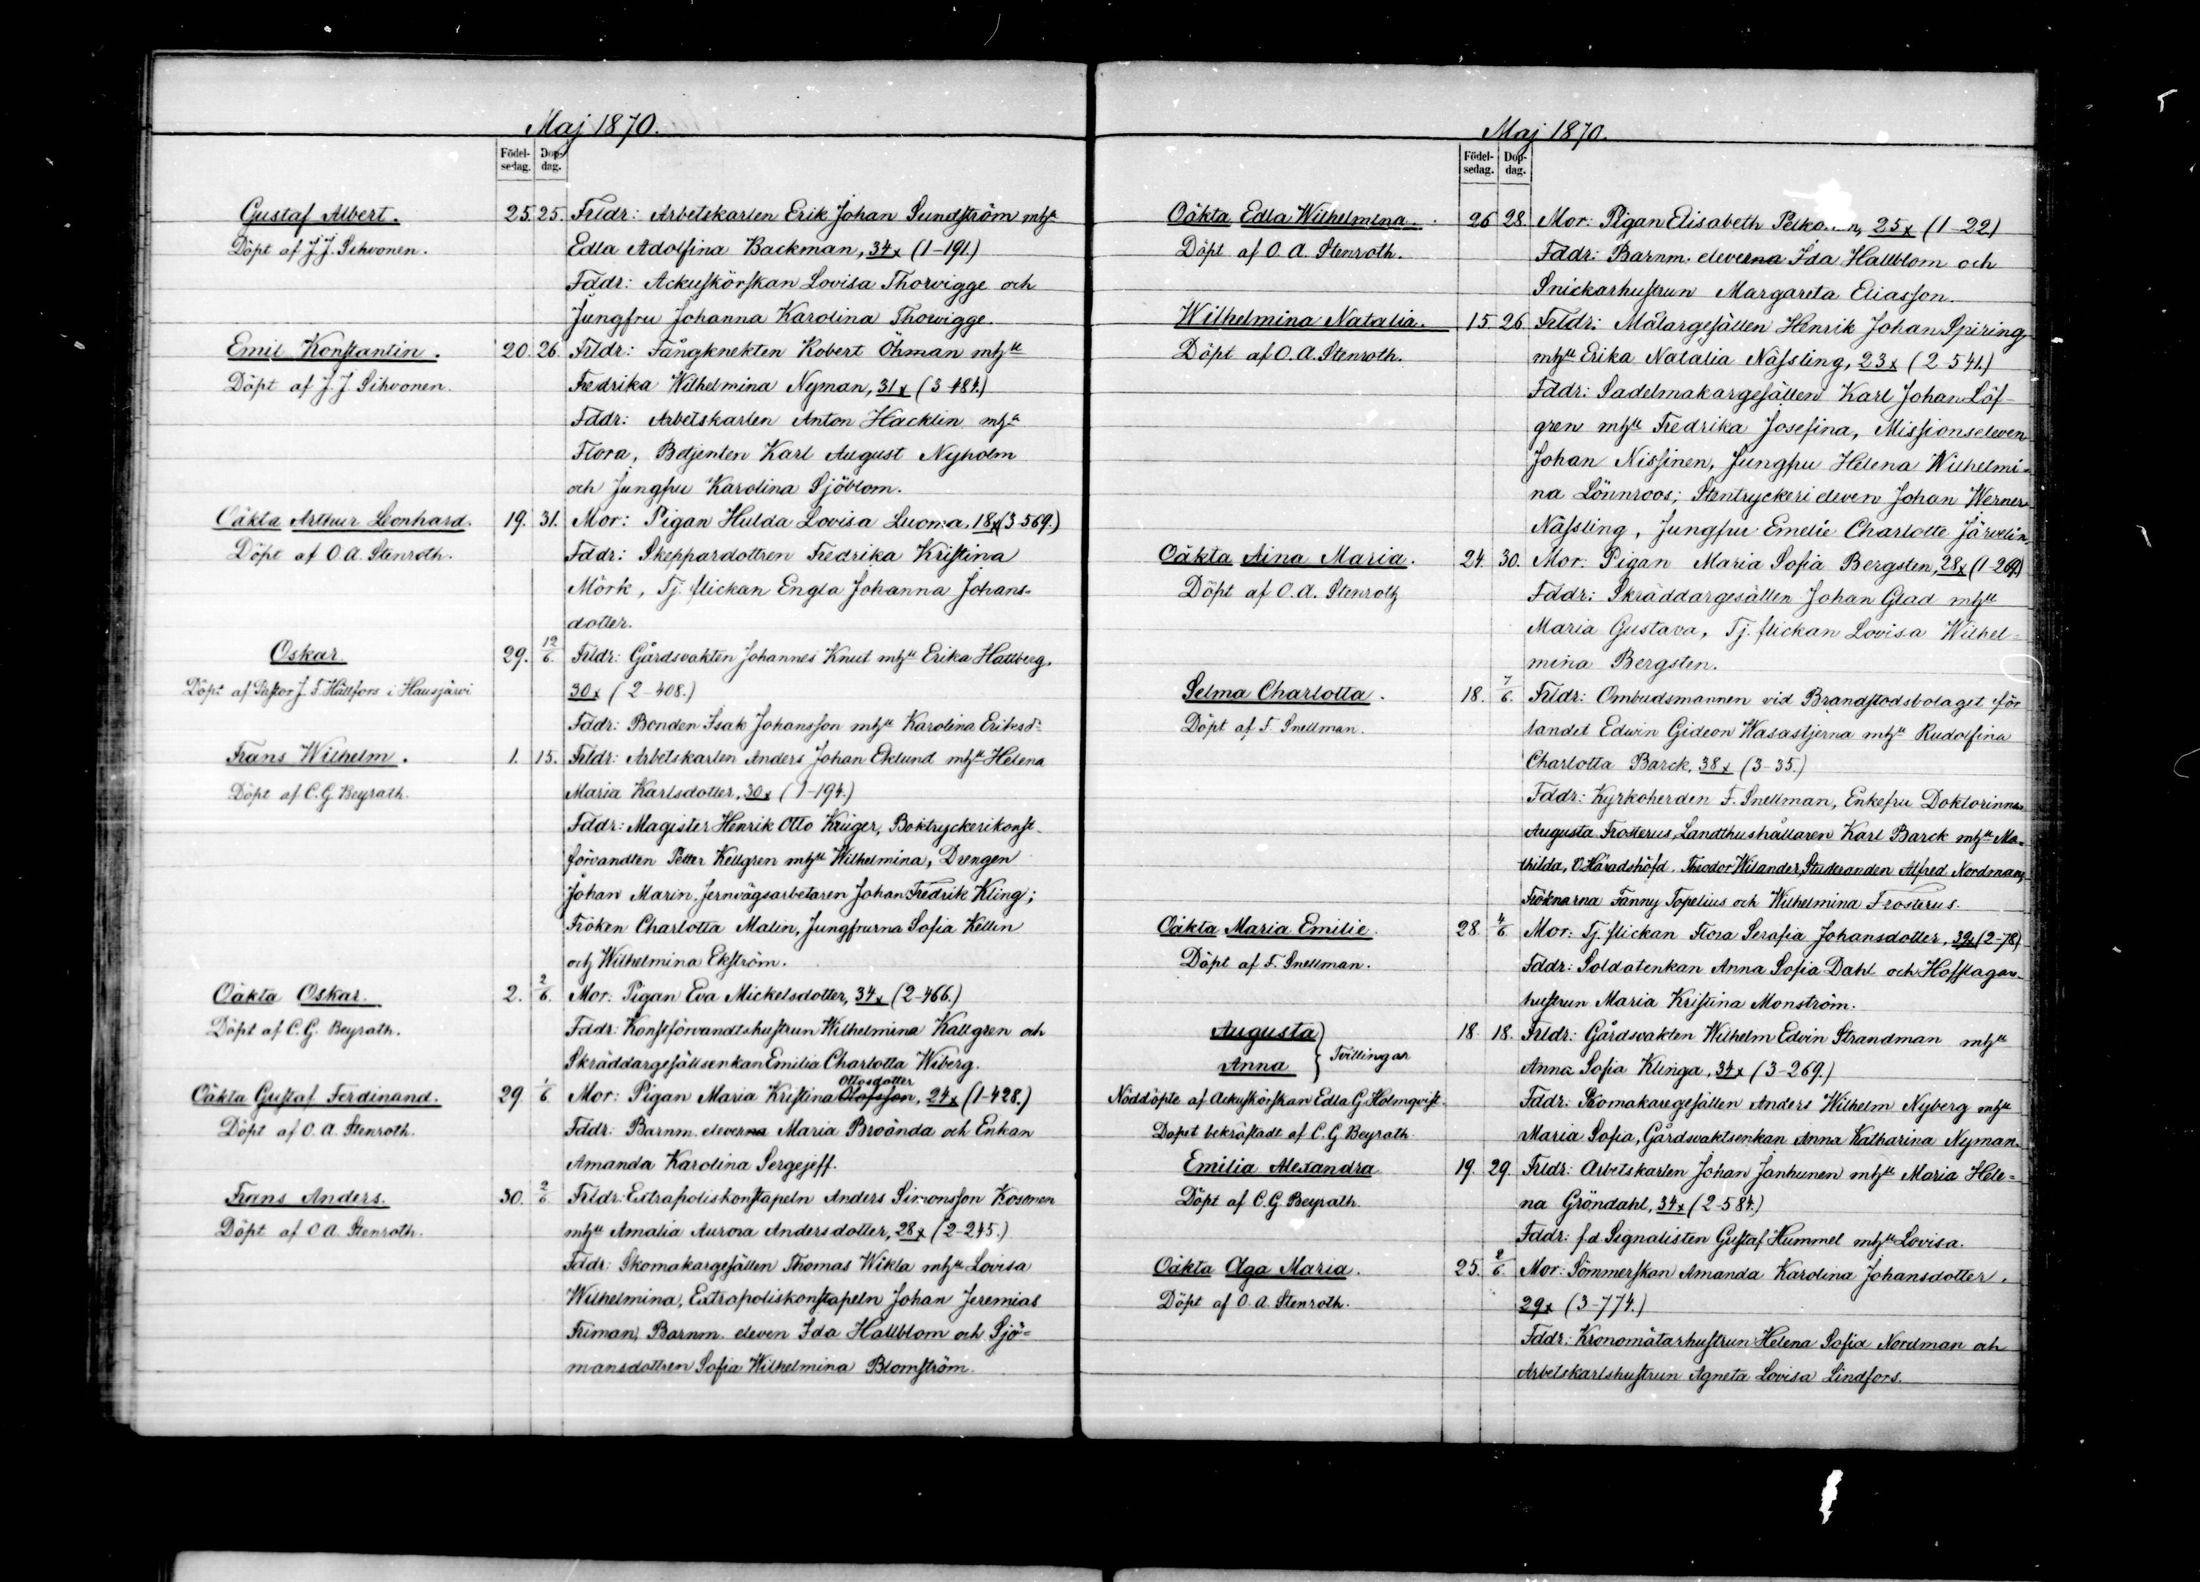 Maj 1870.
Födel-sedag. Dop-dag.
Gustaf Albert. 25. 25. Frldr: Arbetskarlen Erik Johan Sundström mhu
Döpt af J. J. Sihvonen. Edla Adolfina Backman, 34x (1-191.)
Fddr: Ackuſkörſkan Lovisa Thorvigge och
Jungfru Johanna Karolina Thorvigge.
Emil Konſtantin. 20. 26. Frldr: Fångknekten Robert Öhman mhu
Döpt af J. J. Sihvonen. Fredrika Wilhelmina Nyman, 31x (3-484.)
Fddr: Arbetskarlen Anton Hacklin mhu
Flora, Betjenten Karl August Nyholm
och Jungfru Karolina Sjöblom.
Oäkta Arthur Leonhard. 19. 31. Mor: Pigan Hulda Lovisa Luoma, 18x (3-569.)
Döpt af O. A. Stenroth. Fddr: Skeppardottren Fredrika Kriſtina
Mörk, Tj. flickan Engla Johanna Johans=
dotter.
Oskar 29. 12/6. Frldr: Gårdsvakten Johannes Knut mhu Erika Hallberg,
Döpt af Paſtor J. F. Hällfors i Hausjärvi 30x (2-408.)
Fddr: Bonden Isak Johansſon mhu Karolina Eriksdr
Frans Wilhelm. 1. 15. Frldr: Arbetskarlen Anders Johan Eklund mhu Helena
Döpt af C. G. Beyrath. Maria Karlsdotter, 30x (1-194.)
Fddr: Magister Henrik Otto Krüger, Boktryckerikonſt-
förvandten Petter Kellgren mhu Wilhelmina, Drengen
Johan Marin, Jernvägsarbetaren Johan Fredrik Kling;
Fröken Charlotta Malin, Jungfrurna Sofia Kellin
och Wilhelmina Ekſtröm.
Oäkta Oskar. 2. 2/6. Mor: Pigan Eva Mickelsdotter, 34x (2-466.)
Döpt af C. G. Beyrath. Fddr: Konſtförvandtshuſtrun Wilhelmina Källgren och
Skräddargeſällsenkan Emilia Charlotta Wiberg.
Ottosdotter
Oäkta Guſtaf Ferdinand. 29. 1/6 Mor: Pigan Maria Kriſtina Olofsſon, 24x (1-428.)
Döpt af O. A. Stenroth. Fddr: Barnm. eleverna Maria Broända och Enkan
Amanda Karolina Sergejeff.
Frans Anders. 30. 2/6 Frldr: Extrapoliskonſtapeln Anders Simonsſon Kosonen
Döpt af O. A. Stenroth. mhu Amalia Aurora Andersdotter, 28x (2-245.)
Fddr: Skomakargeſällen Thomas Wikla mhu Lovisa
Wilhelmina, Extrapoliskonſtapeln Johan Jeremias
Friman, Barnm. eleven Ida Hallblom och Sjö=
mansdottren Sofia Wilhelmina Blomſtröm.
Maj 1870.
Födel-sedag. Dop-dag.
Oäkta Edla Wilhelmina. 26 28 Mor: Pigan Elisabeth 25x (1-22)
Döpt af O. A. Stenroth. Fddr: Barnm. eleverna Ida Hallblom och
Snickarhuſtrun Margareta Eliasſon.
Wilhelmina Natalia. 15 26 Frldr: Målargeſällen Henrik Johan Spiring
Döpt af O. A. Stenroth. mhu Erika Natalia Näſsling, 23x (2-541.)
Fddr: Sadelmakargeſällen Karl Johan Löf-
gren mhu Fredrika Josefina, Misſionseleven
Johan Nisſinen, Jungfru Helena Wilhelmi=
na Lönnroos; Stentryckerieleven Johan Werner
Näſsling, Jungfru Emelie Charlotte Järvelin.
Oäkta Aina Maria. 24. 30. Mor: Pigan Maria Sofia Bergsten, 28x (1-269.)
Döpt af O. A. Stenroth Fddr: Skräddargesällen Johan Glad mhu
Maria Gustava, Tj. flickan Lovisa Wilhel=
mina Bergsten.
Selma Charlotta. 18. 7/6. Frldr: Ombudsmannen vid Brandſtodsbolaget för
Döpt af F. Snellman. landet Edwin Gideon Wasastjerna mhu Rudolfina
Charlotta Barck, 38x (3-35.)
Fddr: Kyrkoherden F. Snellman, Enkefru Doktorinnan
Augusta Frosterus, Landthushållaren Karl Barck mhu Ma=
thilda, V. Häradshöfd. Theodor Wilander, Studeranden Alfred Nordmann,
Fröknarna Fanny Topelius och Wilhelmina Frosterus.
Oäkta Maria Emilie. 28. 4/6. Mor: Tj. flickan Flora Serafia Johansdotter, 39x (2-78.)
Döpt af F. Snellman. Fddr: Soldatenkan Anna Sofia Dahl och Hofslagar-
huſtrun Maria Kriſtina Monström.
Augusta } 18 18. Frldr: Gårdsvakten Wilhelm Edvin Strandman mhu
Anna } Tvillingar Anna Sofia Klinga, 34x (3-269.)
Nöddöpte af Ackuſkörſkan Edla G. Holmqviſt. Fddr: Skomakaregeſällen Anders Wilhelm Nyberg mhu
Dopet bekräftadt af C. G. Beyrath. Maria Sofia, Gårdsvaktsenkan Anna Katharina Nyman.
Emilia Alexandra 19. 29. Frldr: Arbetskarlen Johan Janhunen mhu Maria Hele=
Döpt af C. G. Beyrath. na Gröndahl, 34x (2-584.)
Fddr: f.d Signalisten Guſtaf Hummel mhu Lovisa.
Oäkta Olga Maria. 25. 2/6. Mor: Sömmerſkan Amanda Karolina Johansdotter,
Döpt af O. A. Stenroth. 29x (3-774.)
Fddr: Kronomätarhuſtrun Helena Sofia Nordman och
Arbetskarlshuſtrun Agneta Lovisa Lindfors.